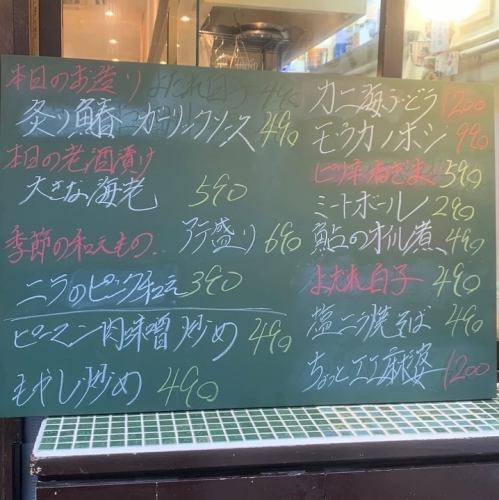 本日のお造り
炙り鰆 ガーリックソース 490
本日の老酒漬け
大きな海老 590
季節の和えもの
アテ盛り 690
ニラのピンク和え 390
ピーマン肉味噌炒め 490
もやし炒め 490
カニ海ぶどう 1200
モウカノホシ 990
ピリ辛ねぎま 590
ミートボール 290
鮎のオイル煮 490
よだれ白子 490
塩ニラ焼そば 490
ちょっと 麻婆 1200